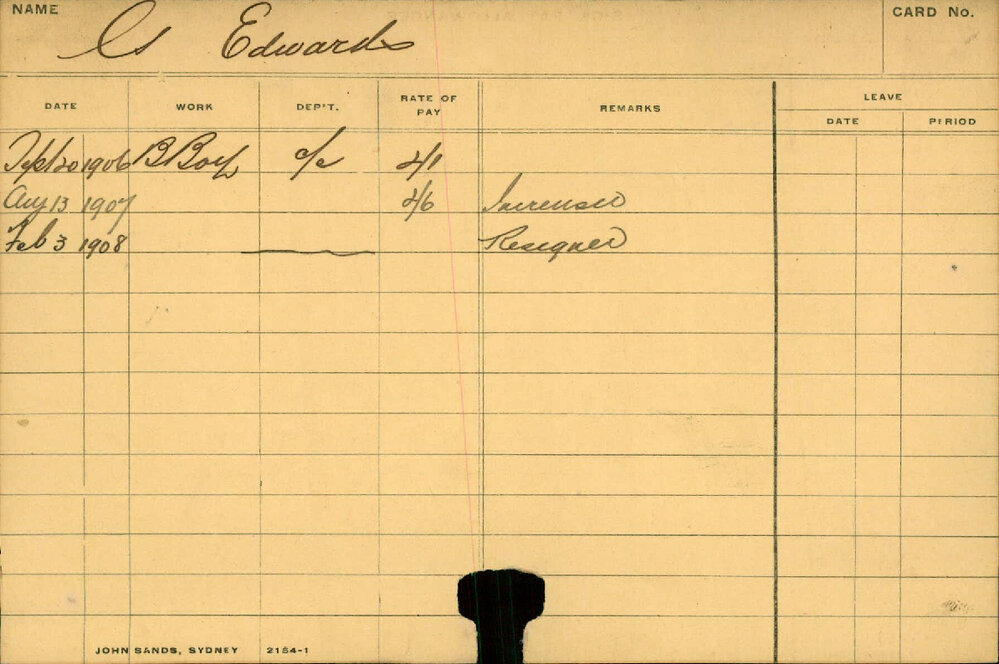 NAME
Edwards
CARD No.
DATE WORK DEP'T. RATE OF PAY REMARKS LEAVE
DATE PERIOD
Sept 20 1906 B Boy c/c 2/1
Aug 13 1907 2/6 Increased
Feb 3 1908 Resigned
JOHN SANDS, SYDNEY 2154-1